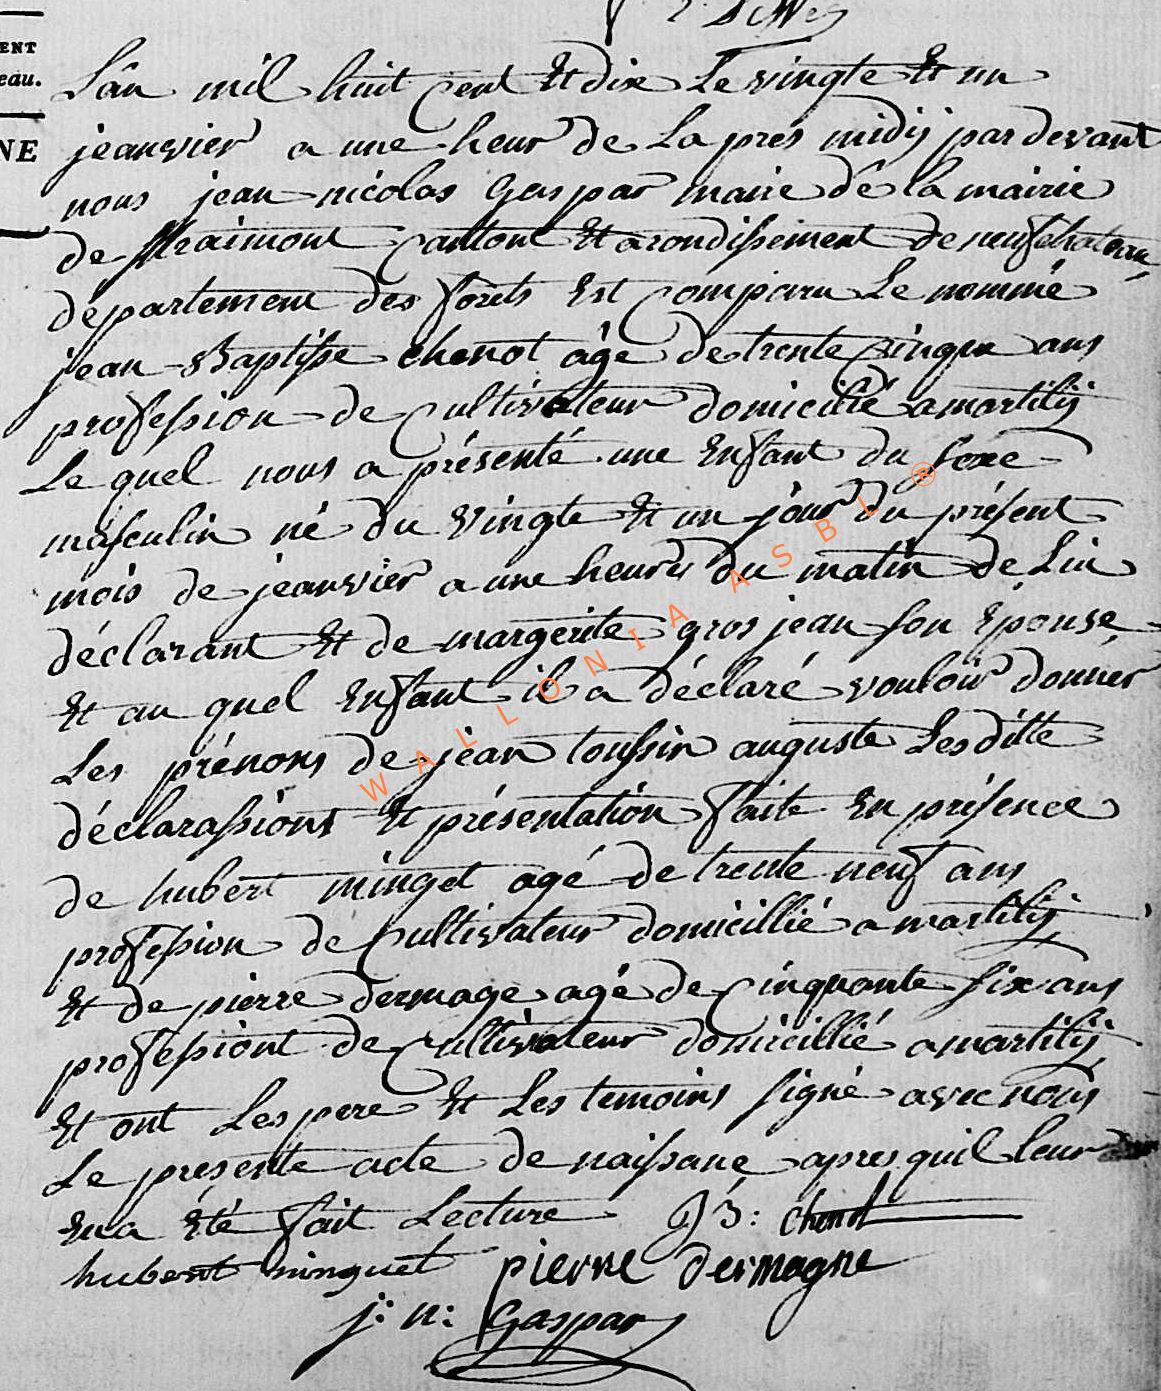 ENT
eau.
NE
L'ân mil huit Cent Et dix Le vingte Et un
jeanvier a une heur de La prés midij par devant
nous jean nicolas Gaspar maire de la mairie
de Straimont Canton Et arondissement de neufchateau
département des forêts Est Comparu Le nommé
jean Baptiste chenot âgé de trente Cinque ans
profession de Cultivateur domicilié a martilij
Le quel nous a présenté une Enfant du sexe
masculin né du vingte Et un jour du présent
mois de jeanvier a une heures du matin de Lui
déclarant Et de margerite gros jean son Épouse
Et au quel Enfant il a déclaré vouloir donner
Les prénoms de jean toussin auguste Lesditte
déclarassions Et présentation faite En présence
de hubert minget agé de trente neuf ans
profession de Cultivateur domicillié a martilij
Et de pierre dermage agé de Cinquante six ans
professiont de Cultivateur domicillié a martilij
Et ont Les pere Et Les temoins signé avec nous
Le presente acte de naissane apres quil leur
En a Été fait Lecture J B: chenot
hubert minguet pierre dermagne
j: n: Gaspar
WALLONIA ASBL ®